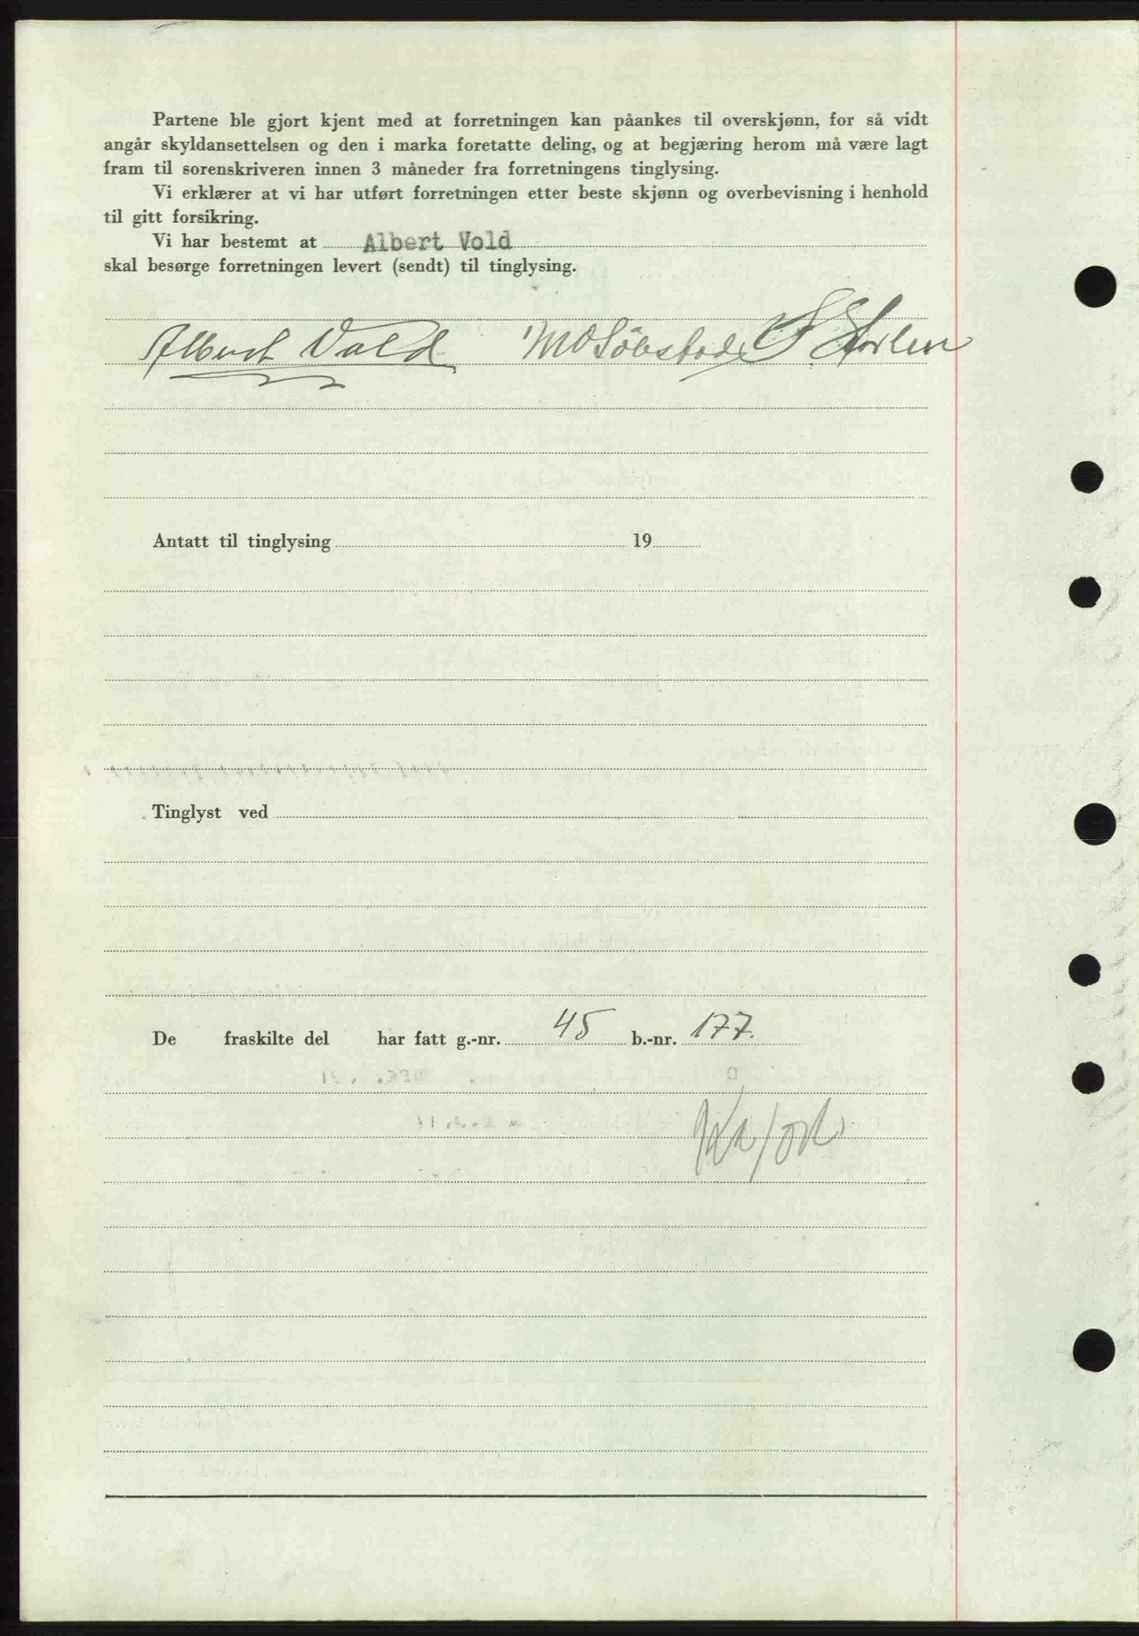 Partene ble gjort kjent med at forretningen kan påankes til overskjønn, for så vidt
angår skyldansettelsen og den i marka foretatte deling, og at begjæring herom må være lagt
fram til sorenskriveren innen 3 måneder fra forretningens tinglysing.
Vi erklærer at vi har utført forretningen etter beste skjønn og overbevisning i henhold
til gitt forsikring.
Vi har bestemt at Albert Vold
skal besørge forretningen levert (sendt) til tinglysing.
Albert Vold
Antatt til tinglysing 19
Tinglyst ved
De fraskilte del har fatt g.-nr. 45 b.-nr. 177.